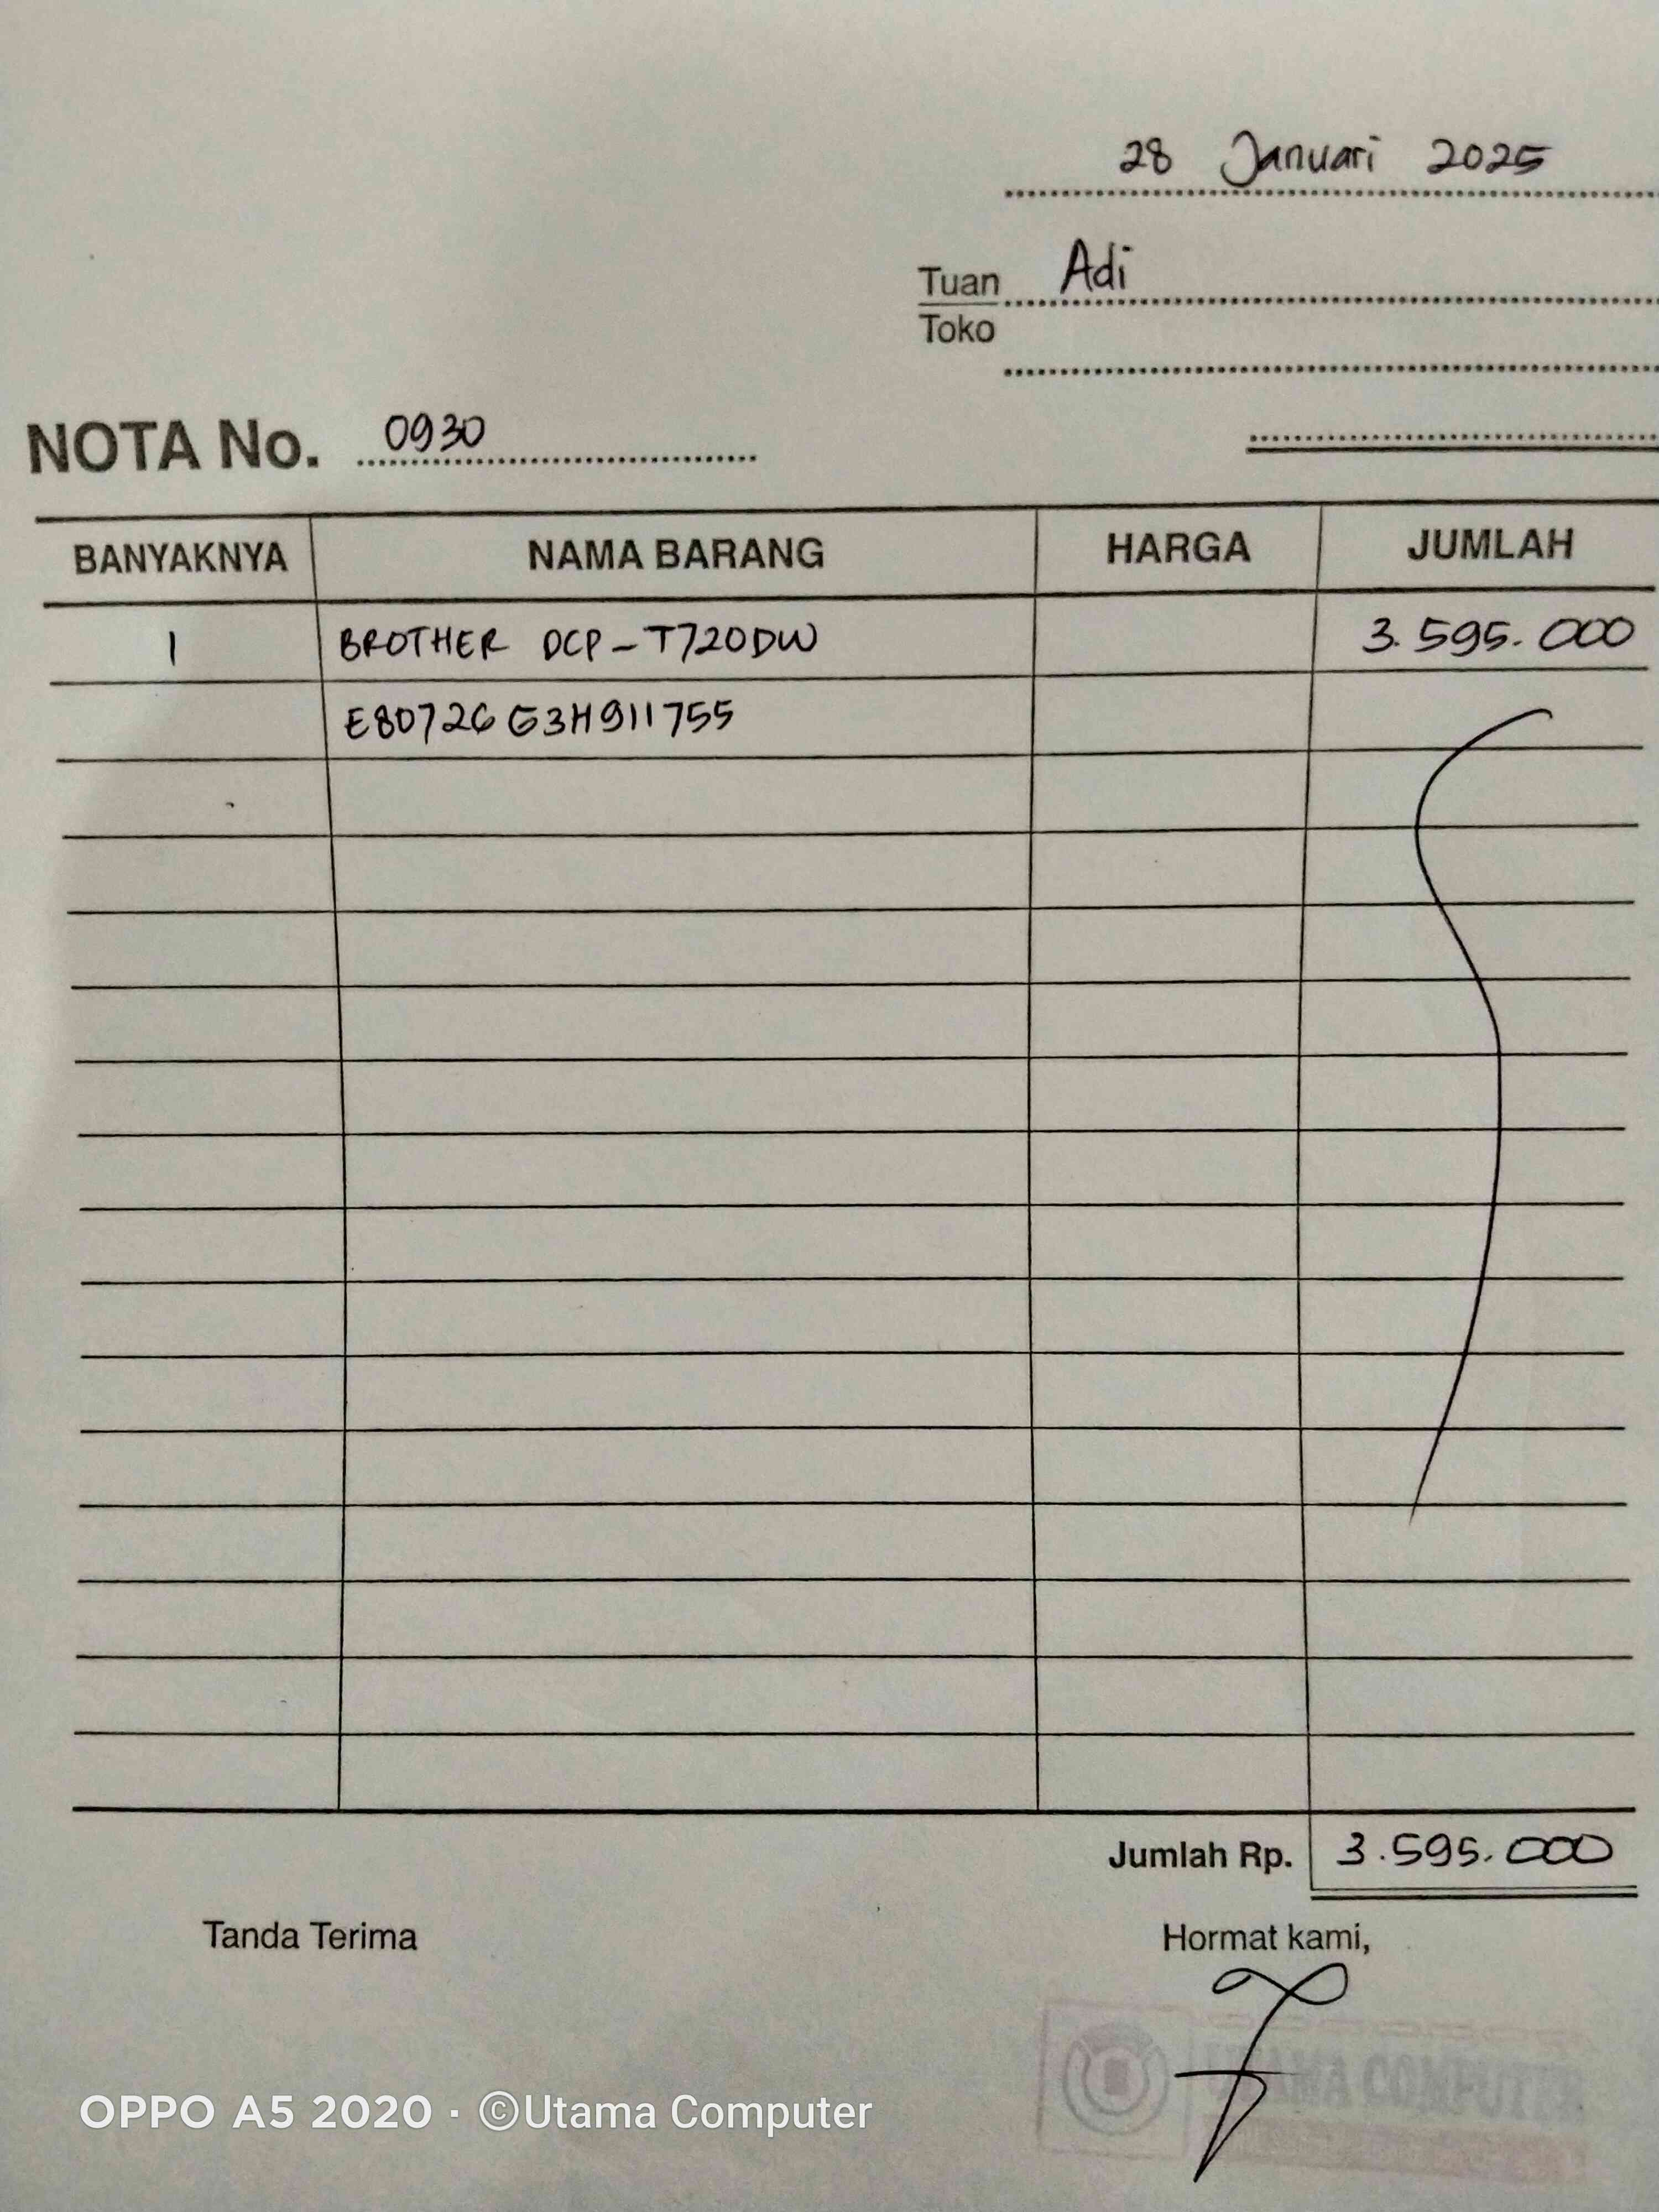 28 Januari 2025
Tuan Adi
Toko
NOTA No. 0930
BANYAKNYA NAMA BARANG HARGA JUMLAH
1 BROTHER DCP-T720DW 3.595.000
E80726G3H911755
Jumlah Rp. 3.595.000
Tanda Terima Hormat kami,
UTAMA COMPUTER
OPPO A5 2020 · ©Utama Computer